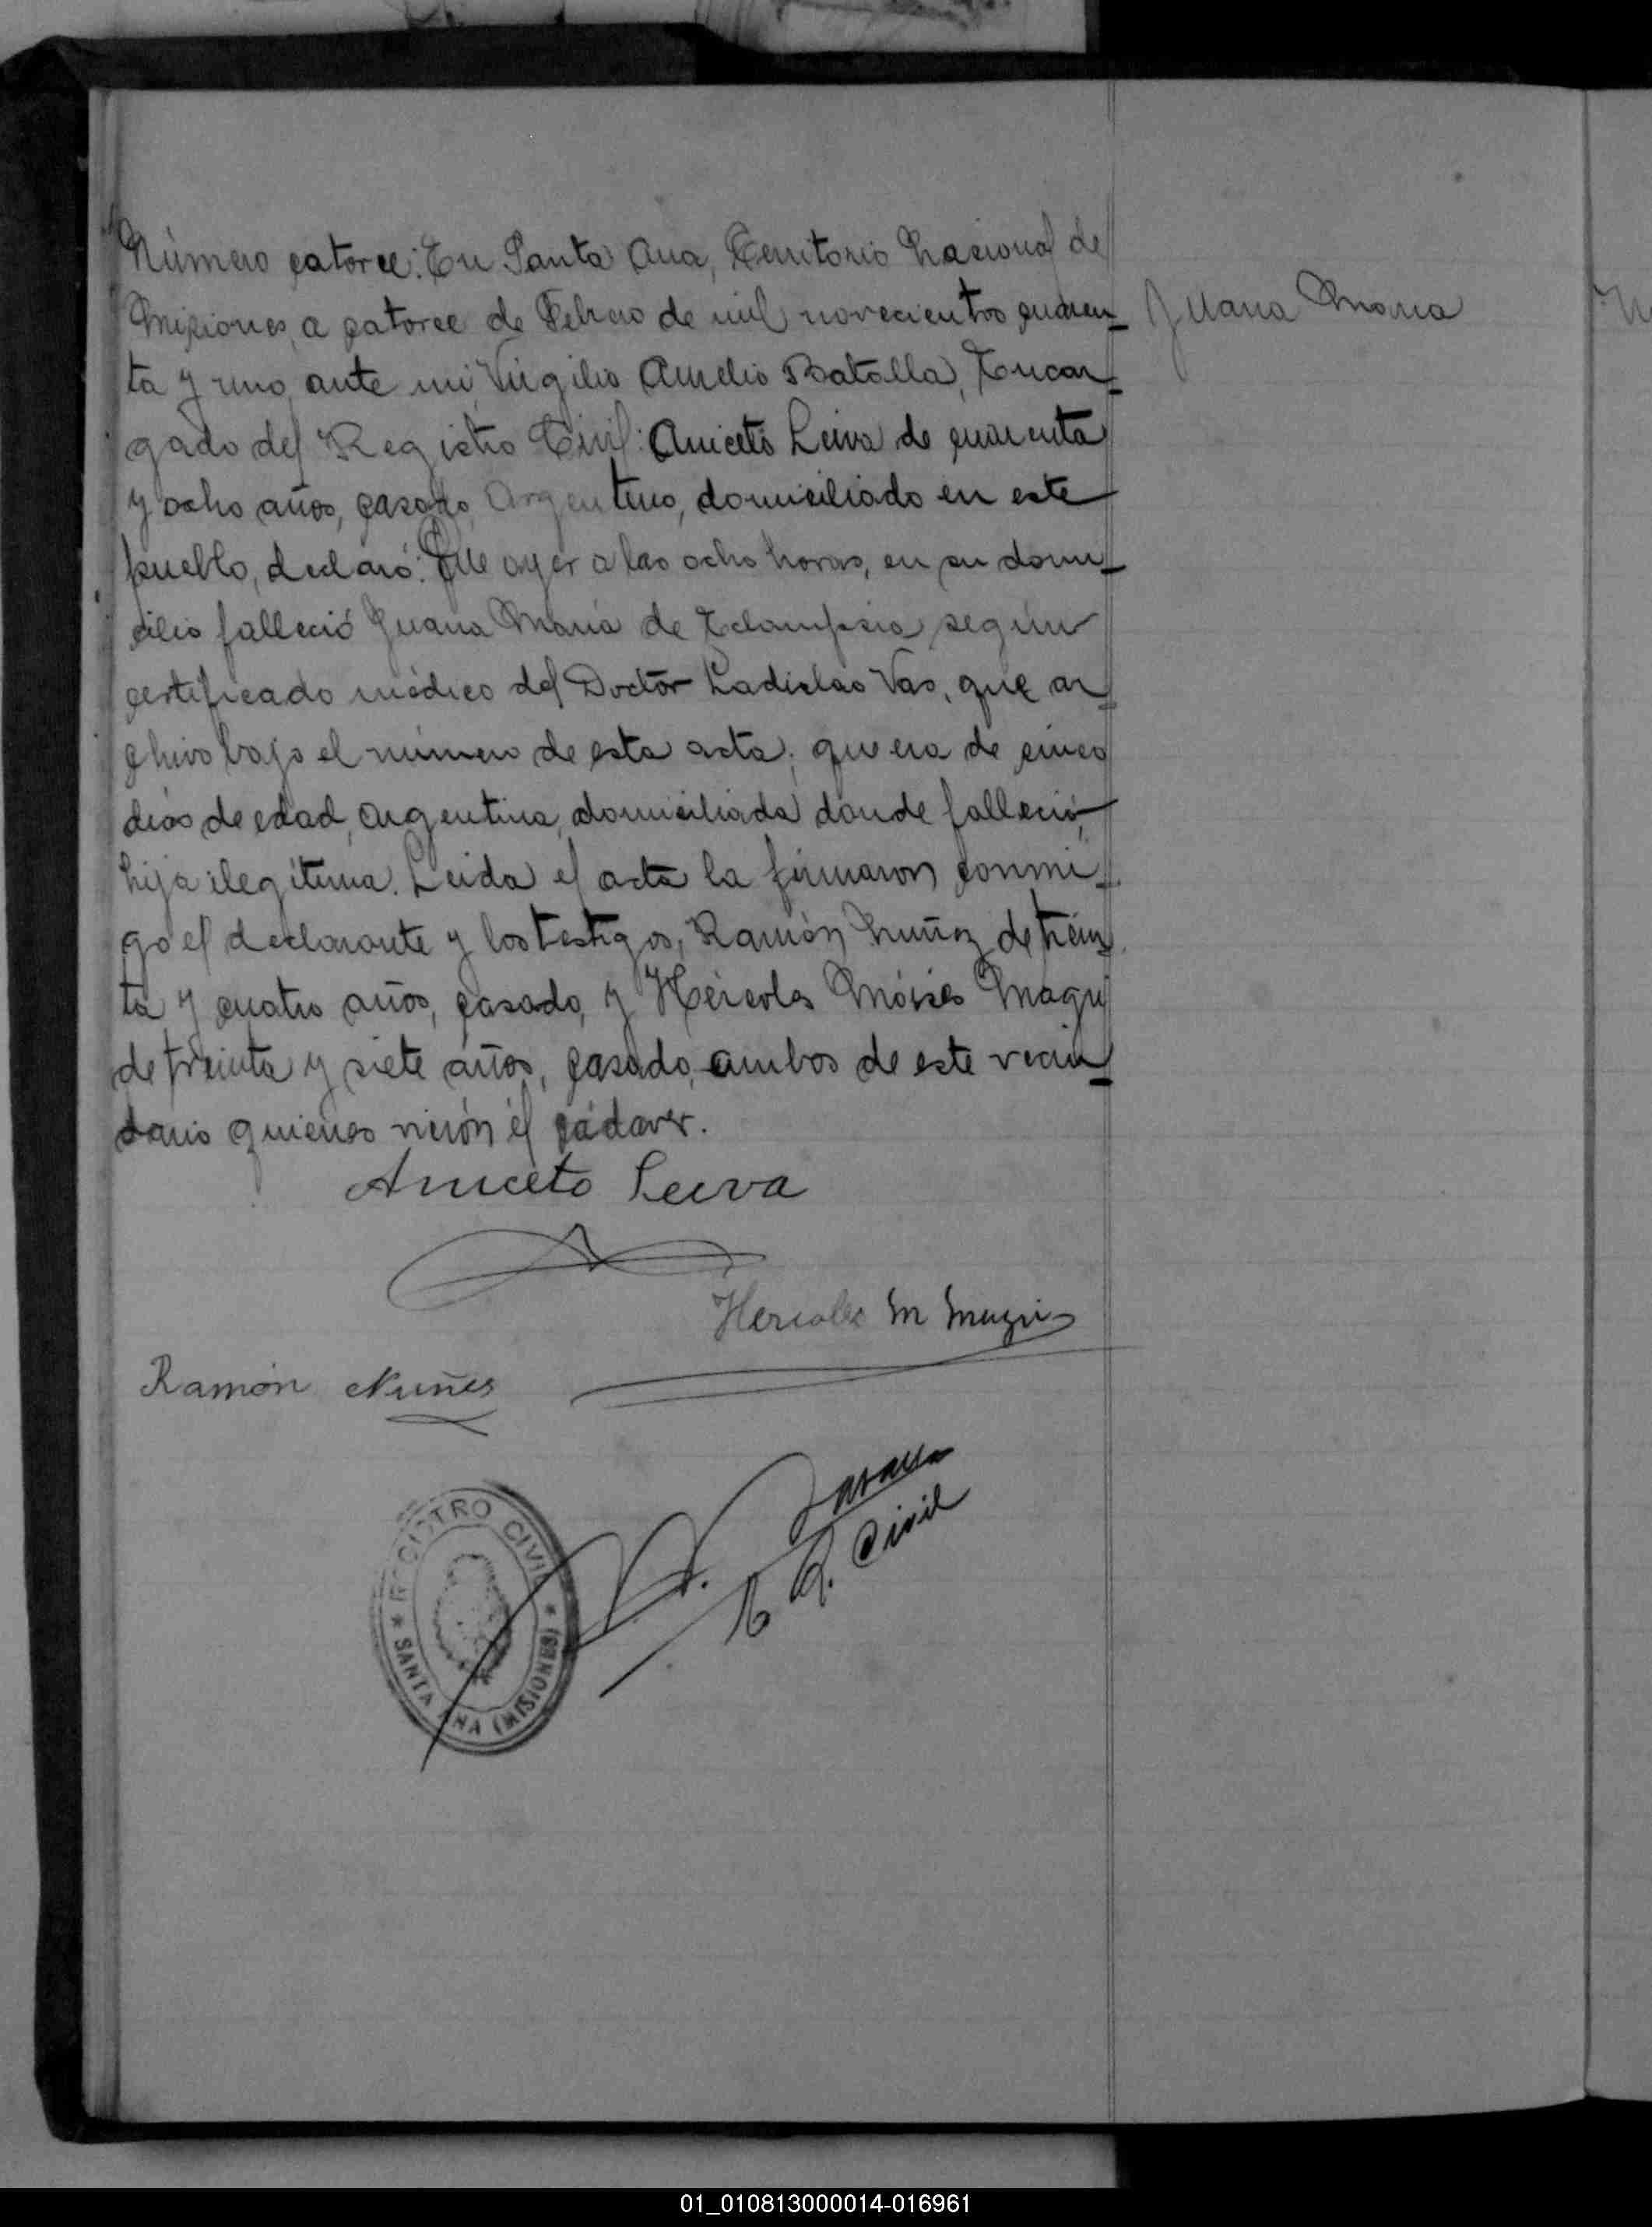 Número catorce: En Santa Ana, Territorio Nacional de
Misiones, a catorce de Febrero de mil novecientos cuaren-
ta y uno, ante mi, Virgilio Aurelio Batalla, Encar-
gado del Registro Civil: Aniceto Leiva de cuarenta
y ocho años, casado, Argentino, domiciliado en este
pueblo, declaró: Que ayer a las ocho horas, en su domi-
cilio falleció Juana María de Eclampsia, según
certificado médico del Doctor Ladislao Vas, que ar-
chivo bajo el número de esta acta; que era de cinco
días de edad, argentina, domiciliada donde falleció,
hija ilegítima. Leida el acta la firmaron conmi-
go el declarante y los testigos, Ramón Nuñez de trein-
ta y cuatro años, casado, y Hércoles Móises
de treinta y siete años, casado, ambos de este vecin-
dario quienes vierón él cádaver.
Juana Maria
Aniceto Leiva
Hercoles M
Ramón Nuñes
R. Civil
REGISTRO CIVIL
* SANTA ANA (MISIONES) *
01_010813000014-016961